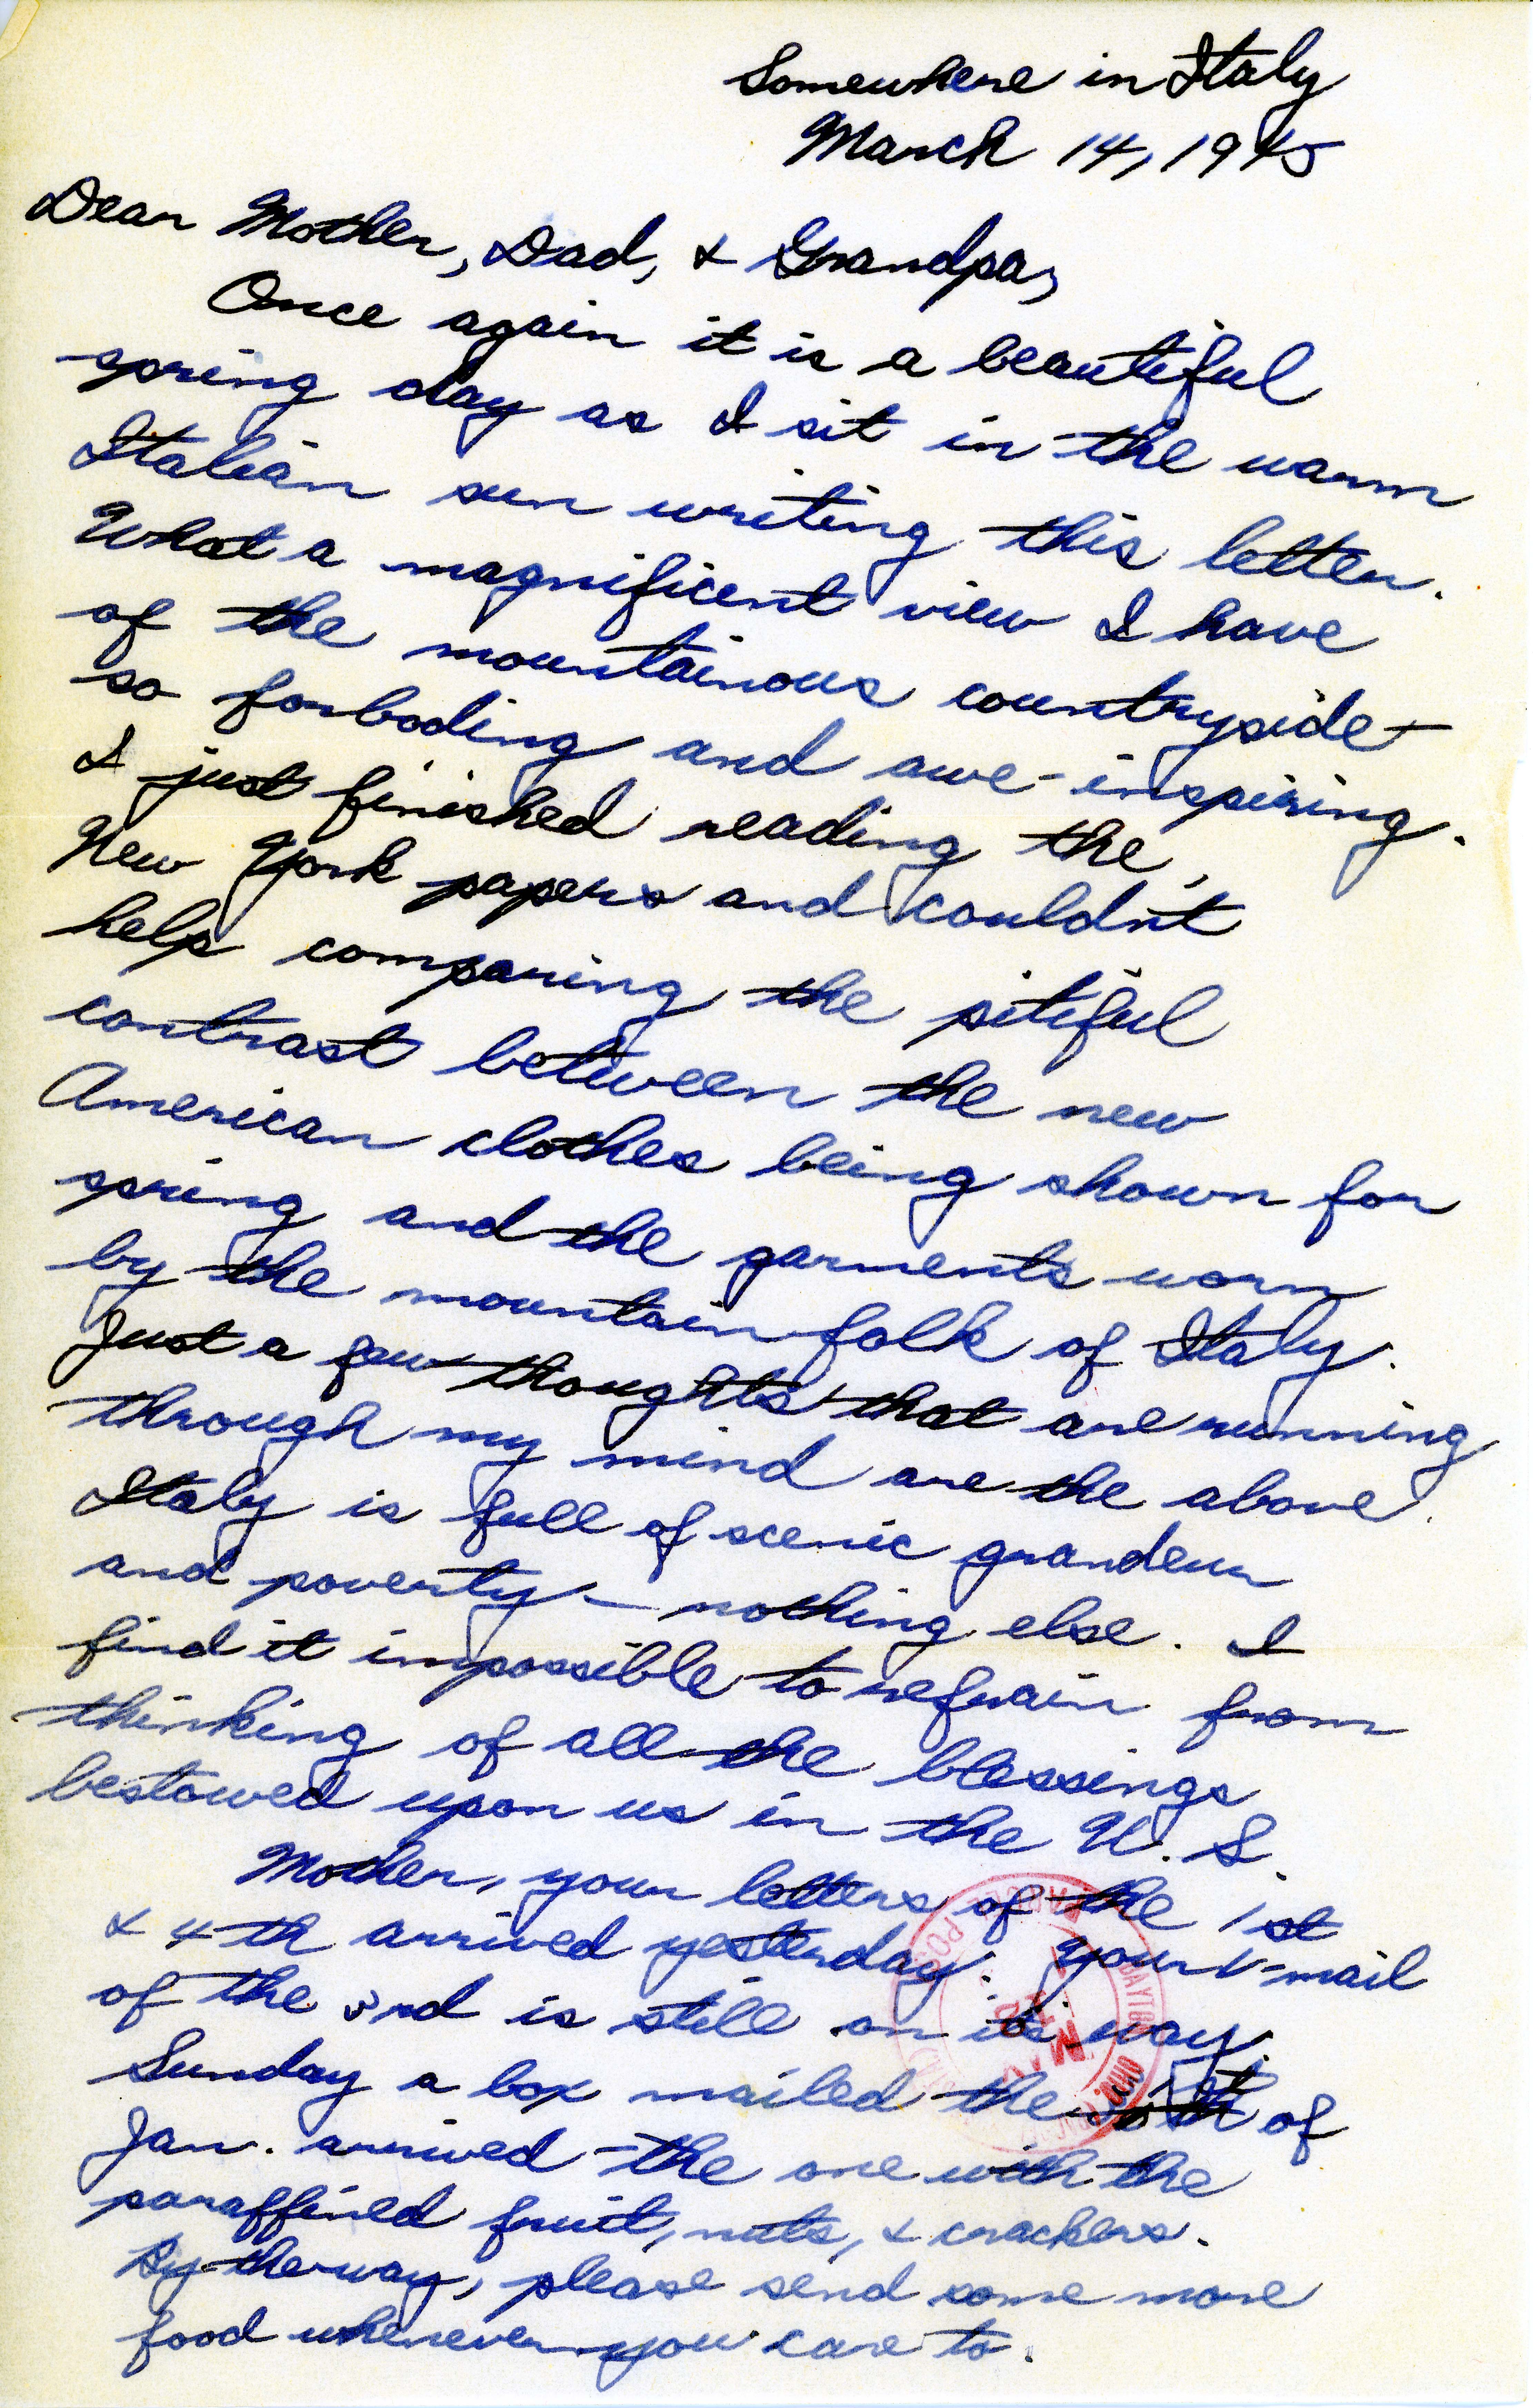 Somewhere in Italy
March 14, 1945
Dear Mother, Dad, & Grandpa,
Once again it is a beautiful
spring day as I sit in the warm
Italian sun writing this letter.
What a magnificent view I have
of the mountainous countryside -
so forboding and awe-inspiring.
I just finished reading the
New York papers and couldn't
help comparing the pitiful
contrast between the new
American clothes being shown for
spring and the garments worn
by the mountain folk of Italy.
Just a few thoughts that are running
through my mind are the above.
Italy is full of scenic grandeur
and poverty - nothing else. I
find it impossible to refrain from
thinking of all the blessings
bestowed upon us in the U.S.
Mother, your letters of the 1st
& 4th arrived yesterday. Your V-mail
of the 3rd is still on its way.
Sunday a box mailed the of
Jan. arrived - the one with the
paraffined fruit, nuts, & crackers.
By the way, please send some more
food whenever you care to.